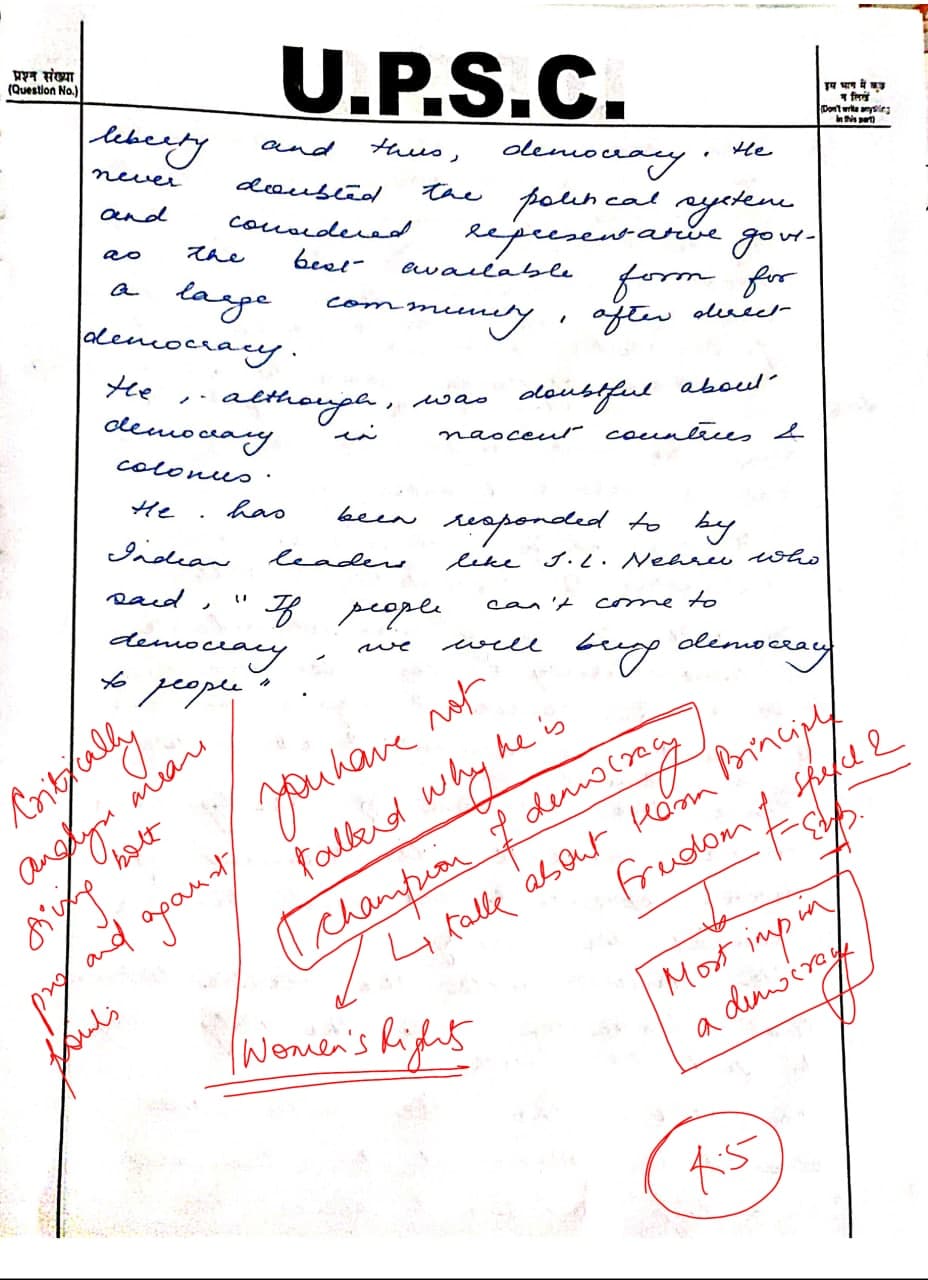 U.P.S.C.
प्रश्न संख्या
(Question No.)
इस भाग में कुछ
न लिखें
(Don't write anything
in this part)
liberty and thus, democracy. He
never doubted the political system
and considered representative govt.
as the best available form for
a large community, after direct
democracy.
He, although, was doubtful about
democracy in nascent countries &
colonies.
He has been responded to by
Indian leaders like J.L. Nehru who
said, "If people can't come to
democracy, we will bring democracy
to people".
Critically
analyse means
giving both
pro and against
points
You have not
talked why he is
champion of democracy
↳ talk about Harm Principle
Women's Rights
Freedom of speech &
Exp.
Most imp in
a democracy
4.5